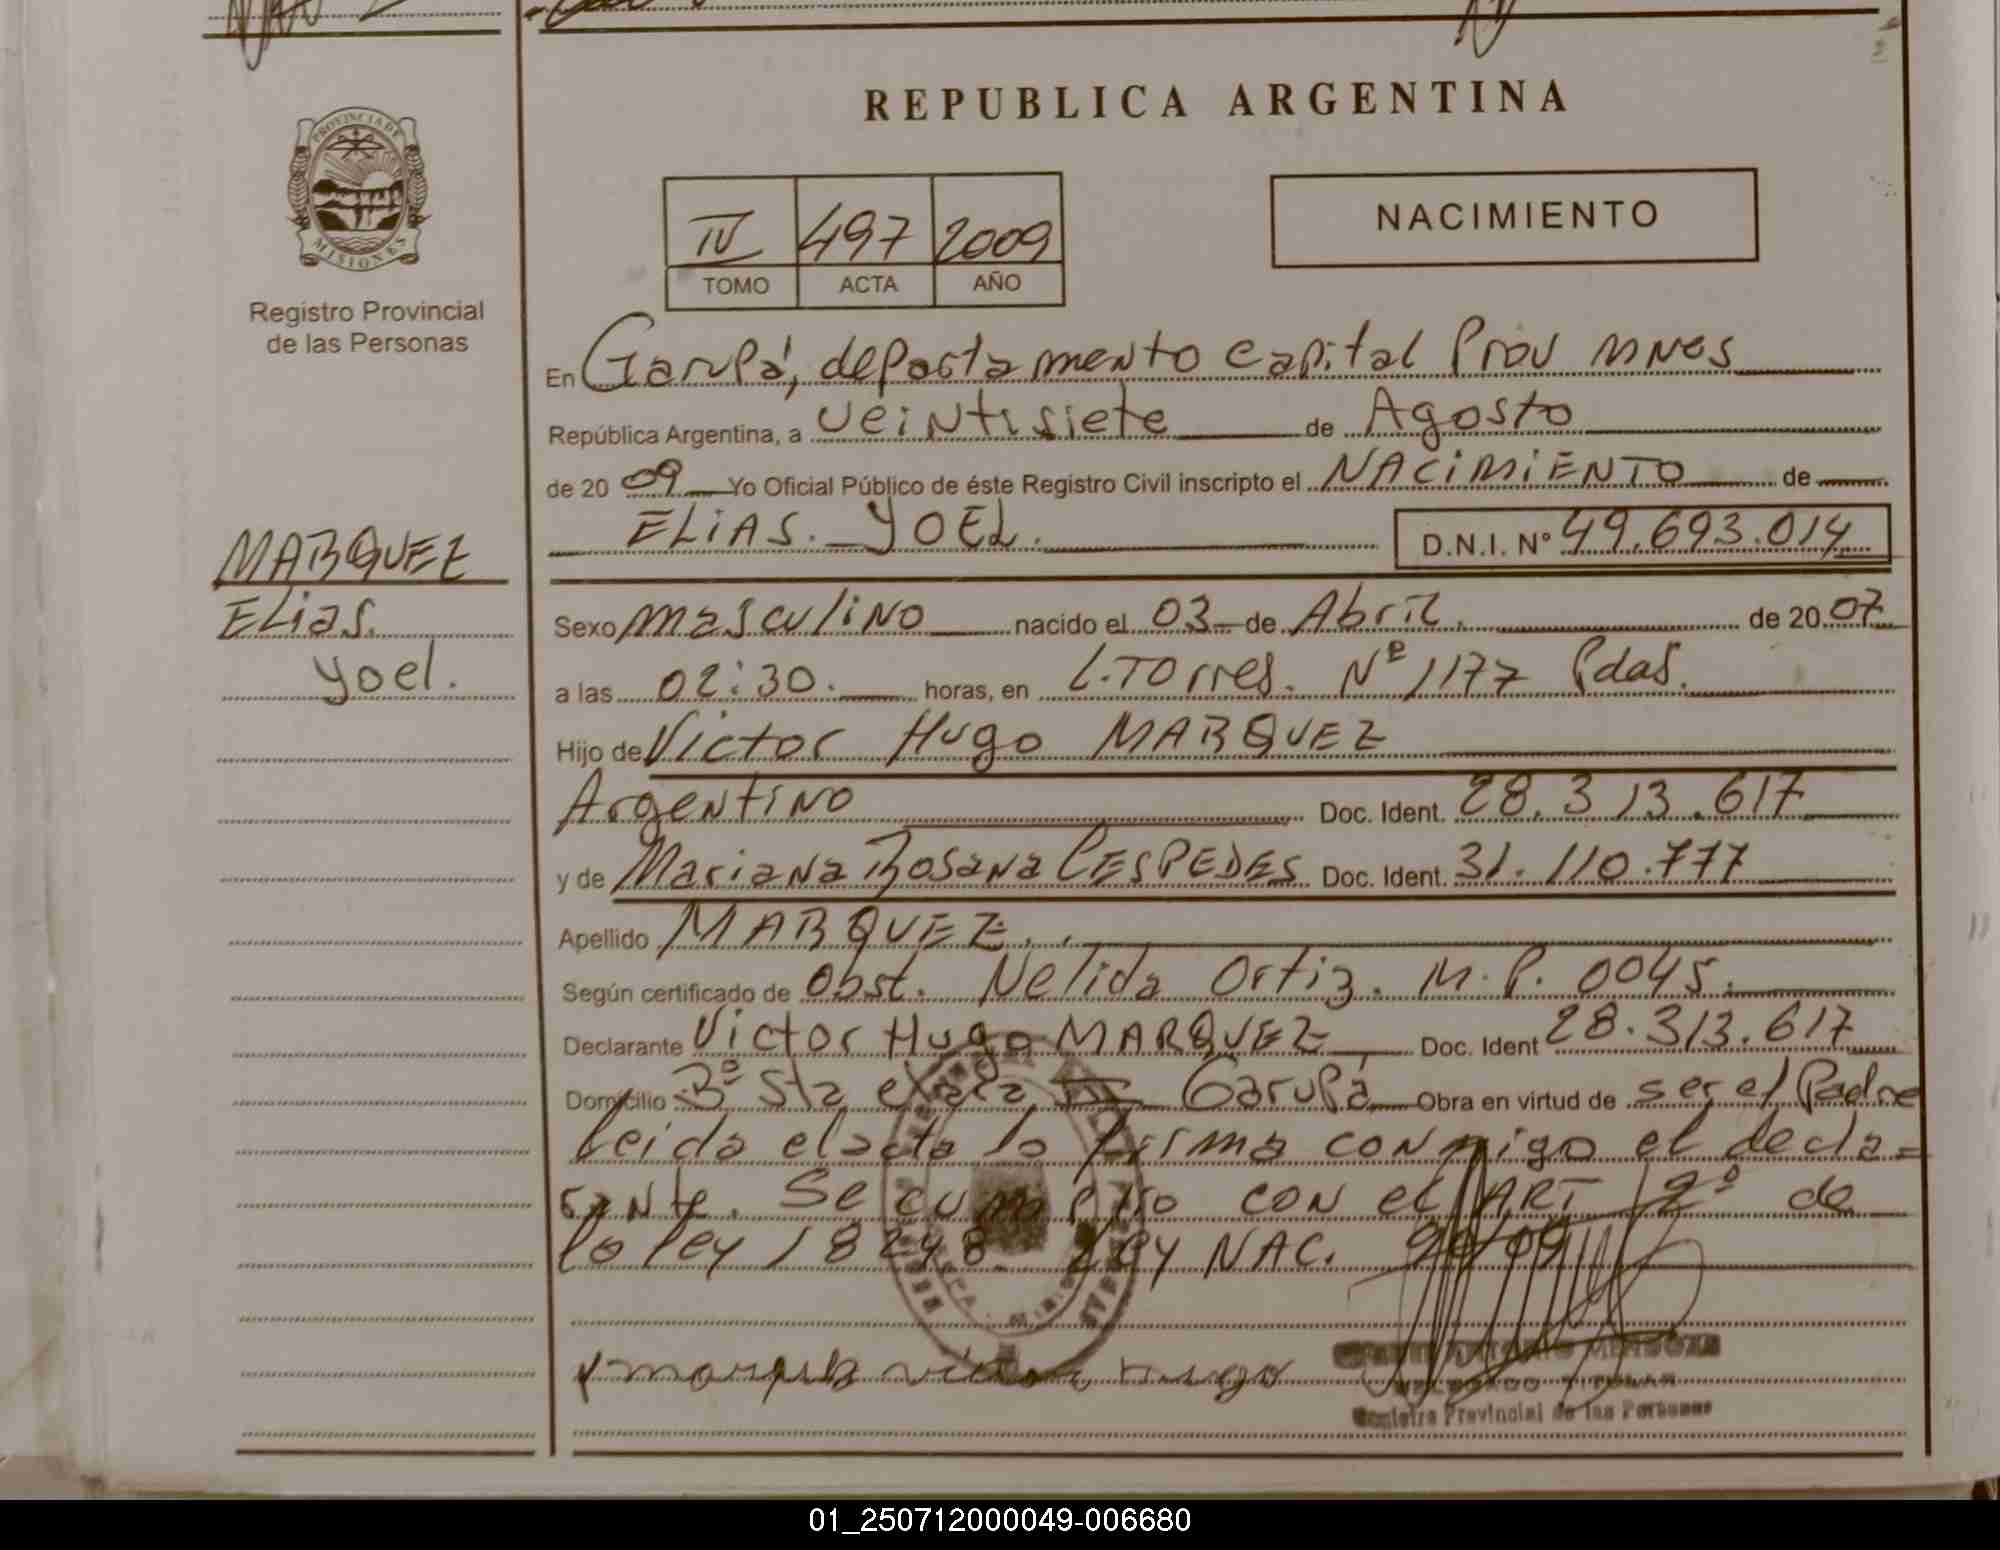 REPUBLICA ARGENTINA
PROVINCIA DE MISIONES
Registro Provincial
de las Personas
IV 497 2009
TOMO ACTA AÑO
NACIMIENTO
En Garupá, departamento capital Prov MNES
República Argentina, a veintisiete de Agosto
de 2009 Yo Oficial Público de éste Registro Civil inscripto el NACIMIENTO de
ELIAS. YOEL. D.N.I. Nº 49.693.014
MARQUEZ
Elias.
yoel.
Sexo masculino nacido el 03 de Abril. de 2007
a las 02:30. horas, en L. Torres. Nº 1177 Pdas.
Hijo de Victor Hugo MARQUEZ
Argentino Doc. Ident. 28.313.617
y de Mariana Rosana CESPEDES Doc. Ident. 31.110.777
Apellido MARQUEZ.
Según certificado de Obst. Nelida Ortiz. M.P. 0045.
Declarante Victor Hugo MARQUEZ Doc. Ident 28.313.617
Domicilio Bº Sta clara Garupá Obra en virtud de ser el Padre
Leida el acta la firma conmigo el decla=
rante. Se cumplio con el ART 2º de
la ley 18248. Ley NAC.
victor hugo
MENDOZA
DELEGADO TITULAR
Registro Provincial de las Personas
01_250712000049-006680